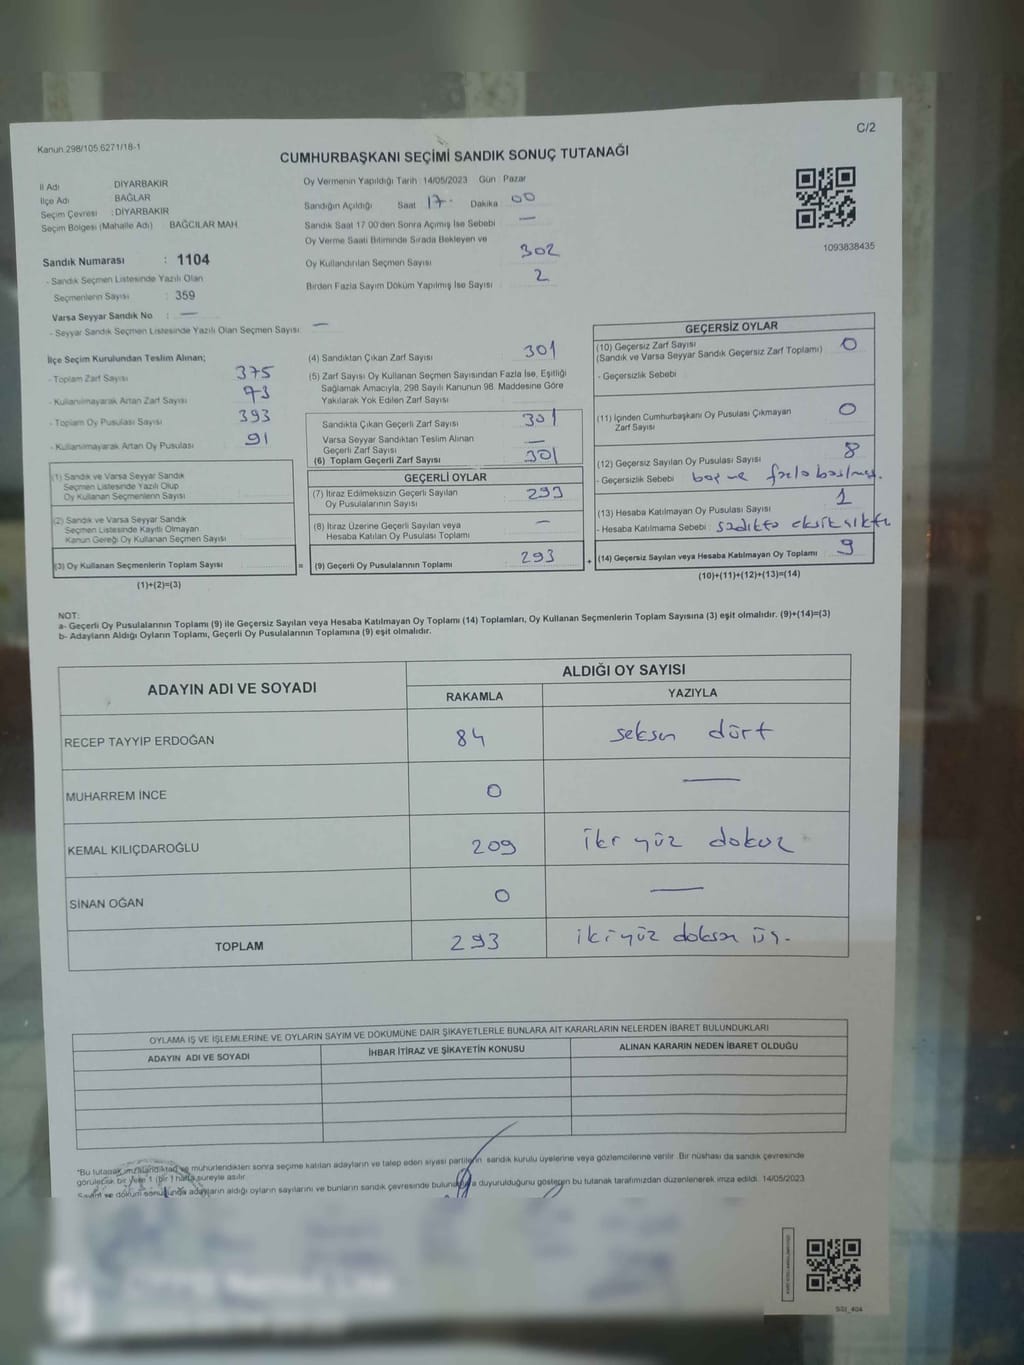 Kanun.298/105.6271/18-1
C/2
CUMHURBAŞKANI SEÇİMİ SANDIK SONUÇ TUTANAĞI
İl Adı DİYARBAKIR
İlçe Adı BAĞLAR
Seçim Çevresi : DİYARBAKIR
Seçim Bölgesi (Mahalle Adı) BAĞCILAR MAH
Sandık Numarası : 1104
- Sandık Seçmen Listesinde Yazılı Olan
Seçmenlerin Sayısı : 359
Varsa Seyyar Sandık No : —
- Seyyar Sandık Seçmen Listesinde Yazılı Olan Seçmen Sayısı : —
Oy Vermenin Yapıldığı Tarih : 14/05/2023 Gün : Pazar
Sandığın Açıldığı Saat 17 Dakika 00
Sandık Saat 17.00'den Sonra Açılmış İse Sebebi —
Oy Verme Saati Bitiminde Sırada Bekleyen ve
Oy Kullandırılan Seçmen Sayısı 302
Birden Fazla Sayım Döküm Yapılmış İse Sayısı 2
1093838435
İlçe Seçim Kurulundan Teslim Alınan;
- Toplam Zarf Sayısı 375
- Kullanılmayarak Artan Zarf Sayısı 73
- Toplam Oy Pusulası Sayısı 393
- Kullanılmayarak Artan Oy Pusulası 91
(1) Sandık ve Varsa Seyyar Sandık
Seçmen Listesinde Yazılı Olup
Oy Kullanan Seçmenlerin Sayısı
(2) Sandık ve Varsa Seyyar Sandık
Seçmen Listesinde Kayıtlı Olmayan
Kanun Gereği Oy Kullanan Seçmen Sayısı
(3) Oy Kullanan Seçmenlerin Toplam Sayısı =
(1)+(2)=(3)
(4) Sandıktan Çıkan Zarf Sayısı 301
(5) Zarf Sayısı Oy Kullanan Seçmen Sayısından Fazla İse, Eşitliği
Sağlamak Amacıyla, 298 Sayılı Kanunun 98. Maddesine Göre
Yakılarak Yok Edilen Zarf Sayısı
Sandıkta Çıkan Geçerli Zarf Sayısı 301
Varsa Seyyar Sandıktan Teslim Alınan
Geçerli Zarf Sayısı —
(6) Toplam Geçerli Zarf Sayısı 301
GEÇERLİ OYLAR
(7) İtiraz Edilmeksizin Geçerli Sayılan
Oy Pusulalarının Sayısı 293
(8) İtiraz Üzerine Geçerli Sayılan veya
Hesaba Katılan Oy Pusulası Toplamı —
(9) Geçerli Oy Pusulalarının Toplamı 293 +
GEÇERSİZ OYLAR
(10) Geçersiz Zarf Sayısı
(Sandık ve Varsa Seyyar Sandık Geçersiz Zarf Toplamı) 0
- Geçersizlik Sebebi
(11) İçinden Cumhurbaşkanı Oy Pusulası Çıkmayan
Zarf Sayısı 0
(12) Geçersiz Sayılan Oy Pusulası Sayısı 8
- Geçersizlik Sebebi boş ve fazla basılmış.
(13) Hesaba Katılmayan Oy Pusulası Sayısı 1
- Hesaba Katılmama Sebebi : sadıkta eksik çıktı
(14) Geçersiz Sayılan veya Hesaba Katılmayan Oy Toplamı 9
(10)+(11)+(12)+(13)=(14)
NOT:
a- Geçerli Oy Pusulalarının Toplamı (9) ile Geçersiz Sayılan veya Hesaba Katılmayan Oy Toplamı (14) Toplamları, Oy Kullanan Seçmenlerin Toplam Sayısına (3) eşit olmalıdır. (9)+(14)=(3)
b- Adayların Aldığı Oyların Toplamı, Geçerli Oy Pusulalarının Toplamına (9) eşit olmalıdır.
ADAYIN ADI VE SOYADI
ALDIĞI OY SAYISI
RAKAMLA YAZIYLA
RECEP TAYYIP ERDOĞAN 84 seksen dört
MUHARREM İNCE 0 —
KEMAL KILIÇDAROĞLU 209 iki yüz dokuz
SİNAN OĞAN 0 —
TOPLAM 293 iki yüz doksan üç.
OYLAMA İŞ VE İŞLEMLERİNE VE OYLARIN SAYIM VE DÖKÜMÜNE DAİR ŞİKAYETLERLE BUNLARA AİT KARARLARIN NELERDEN İBARET BULUNDUKLARI
ADAYIN ADI VE SOYADI İHBAR İTİRAZ VE ŞİKAYETİN KONUSU ALINAN KARARIN NEDEN İBARET OLDUĞU
"Bu tutanak imzalandıktan ve mühürlendikten sonra seçime katılan adayların ve talep eden siyasi partilerin sandık kurulu üyelerine veya gözlemcilerine verilir. Bir nüshası da sandık çevresinde
görülebilir bir yere 1 (bir) hafta süreyle asılır.
Sayım ve döküm sonucunda adayların aldığı oyların sayılarını ve bunların sandık çevresinde bulunanlara duyurulduğunu gösteren bu tutanak tarafımızdan düzenlenerek imza edildi. 14/05/2023